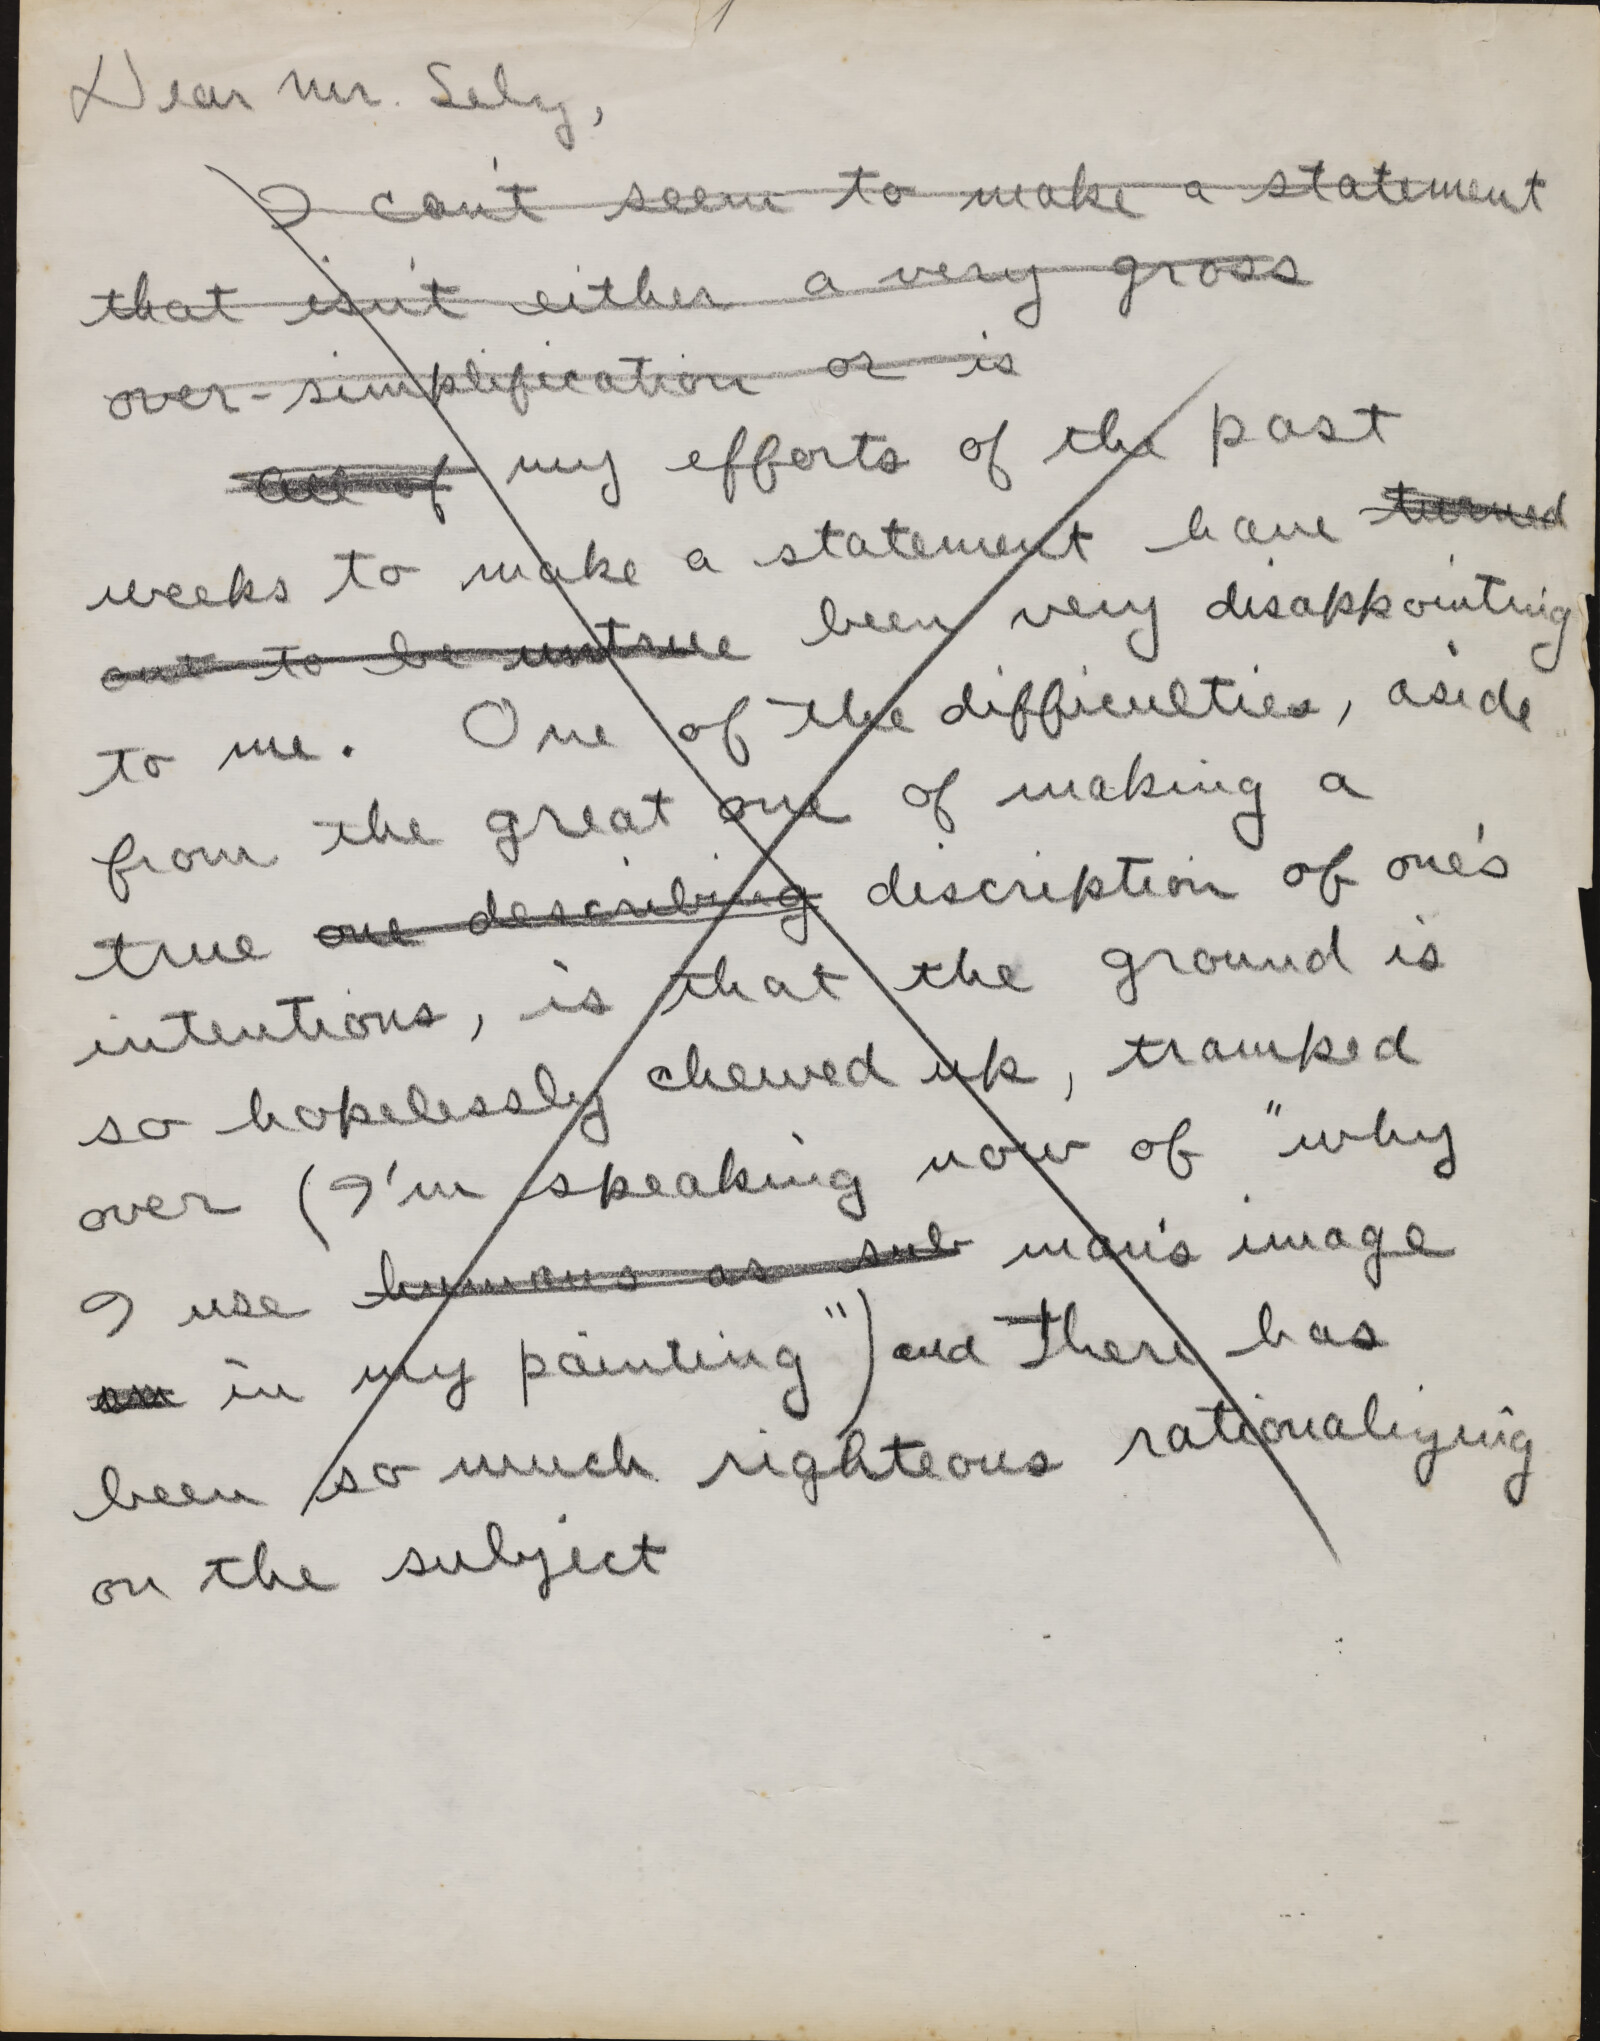 Dear Mr. Selz,
I can't seem to make a statement
that isn't either a very gross
over-simplification or is
All of my efforts of the past
weeks to make a statement have turned
out to be untrue been very disappointing
to me. One of the difficulties, aside
from the great one of making a
true one describing discription of one's
intentions, is that the ground is
so hopelessly chewed up, tramped
over (I'm speaking now of "why
I use humans as sub man's image
in my painting") and there has
been so much righteous rationalizing
on the subject